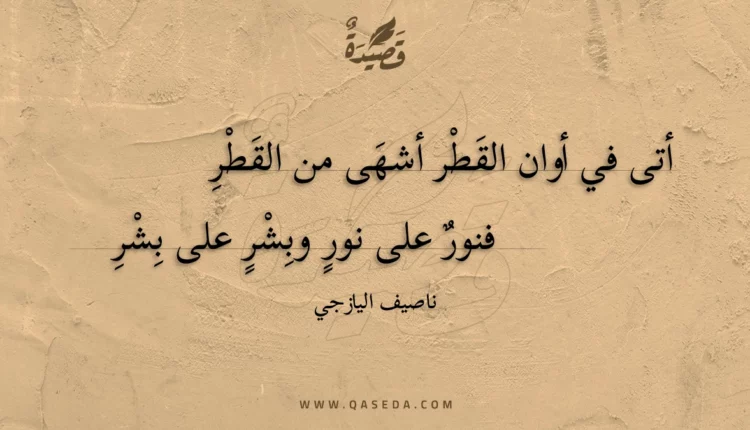 قَصِيْدَةٌ
أتى في أوان القَطْر أشهَى من القَطْرِ
فنورٌ على نورٍ وبِشْرٍ على بِشْرِ
ناصيف اليازجي
WWW.QASEDA.COM